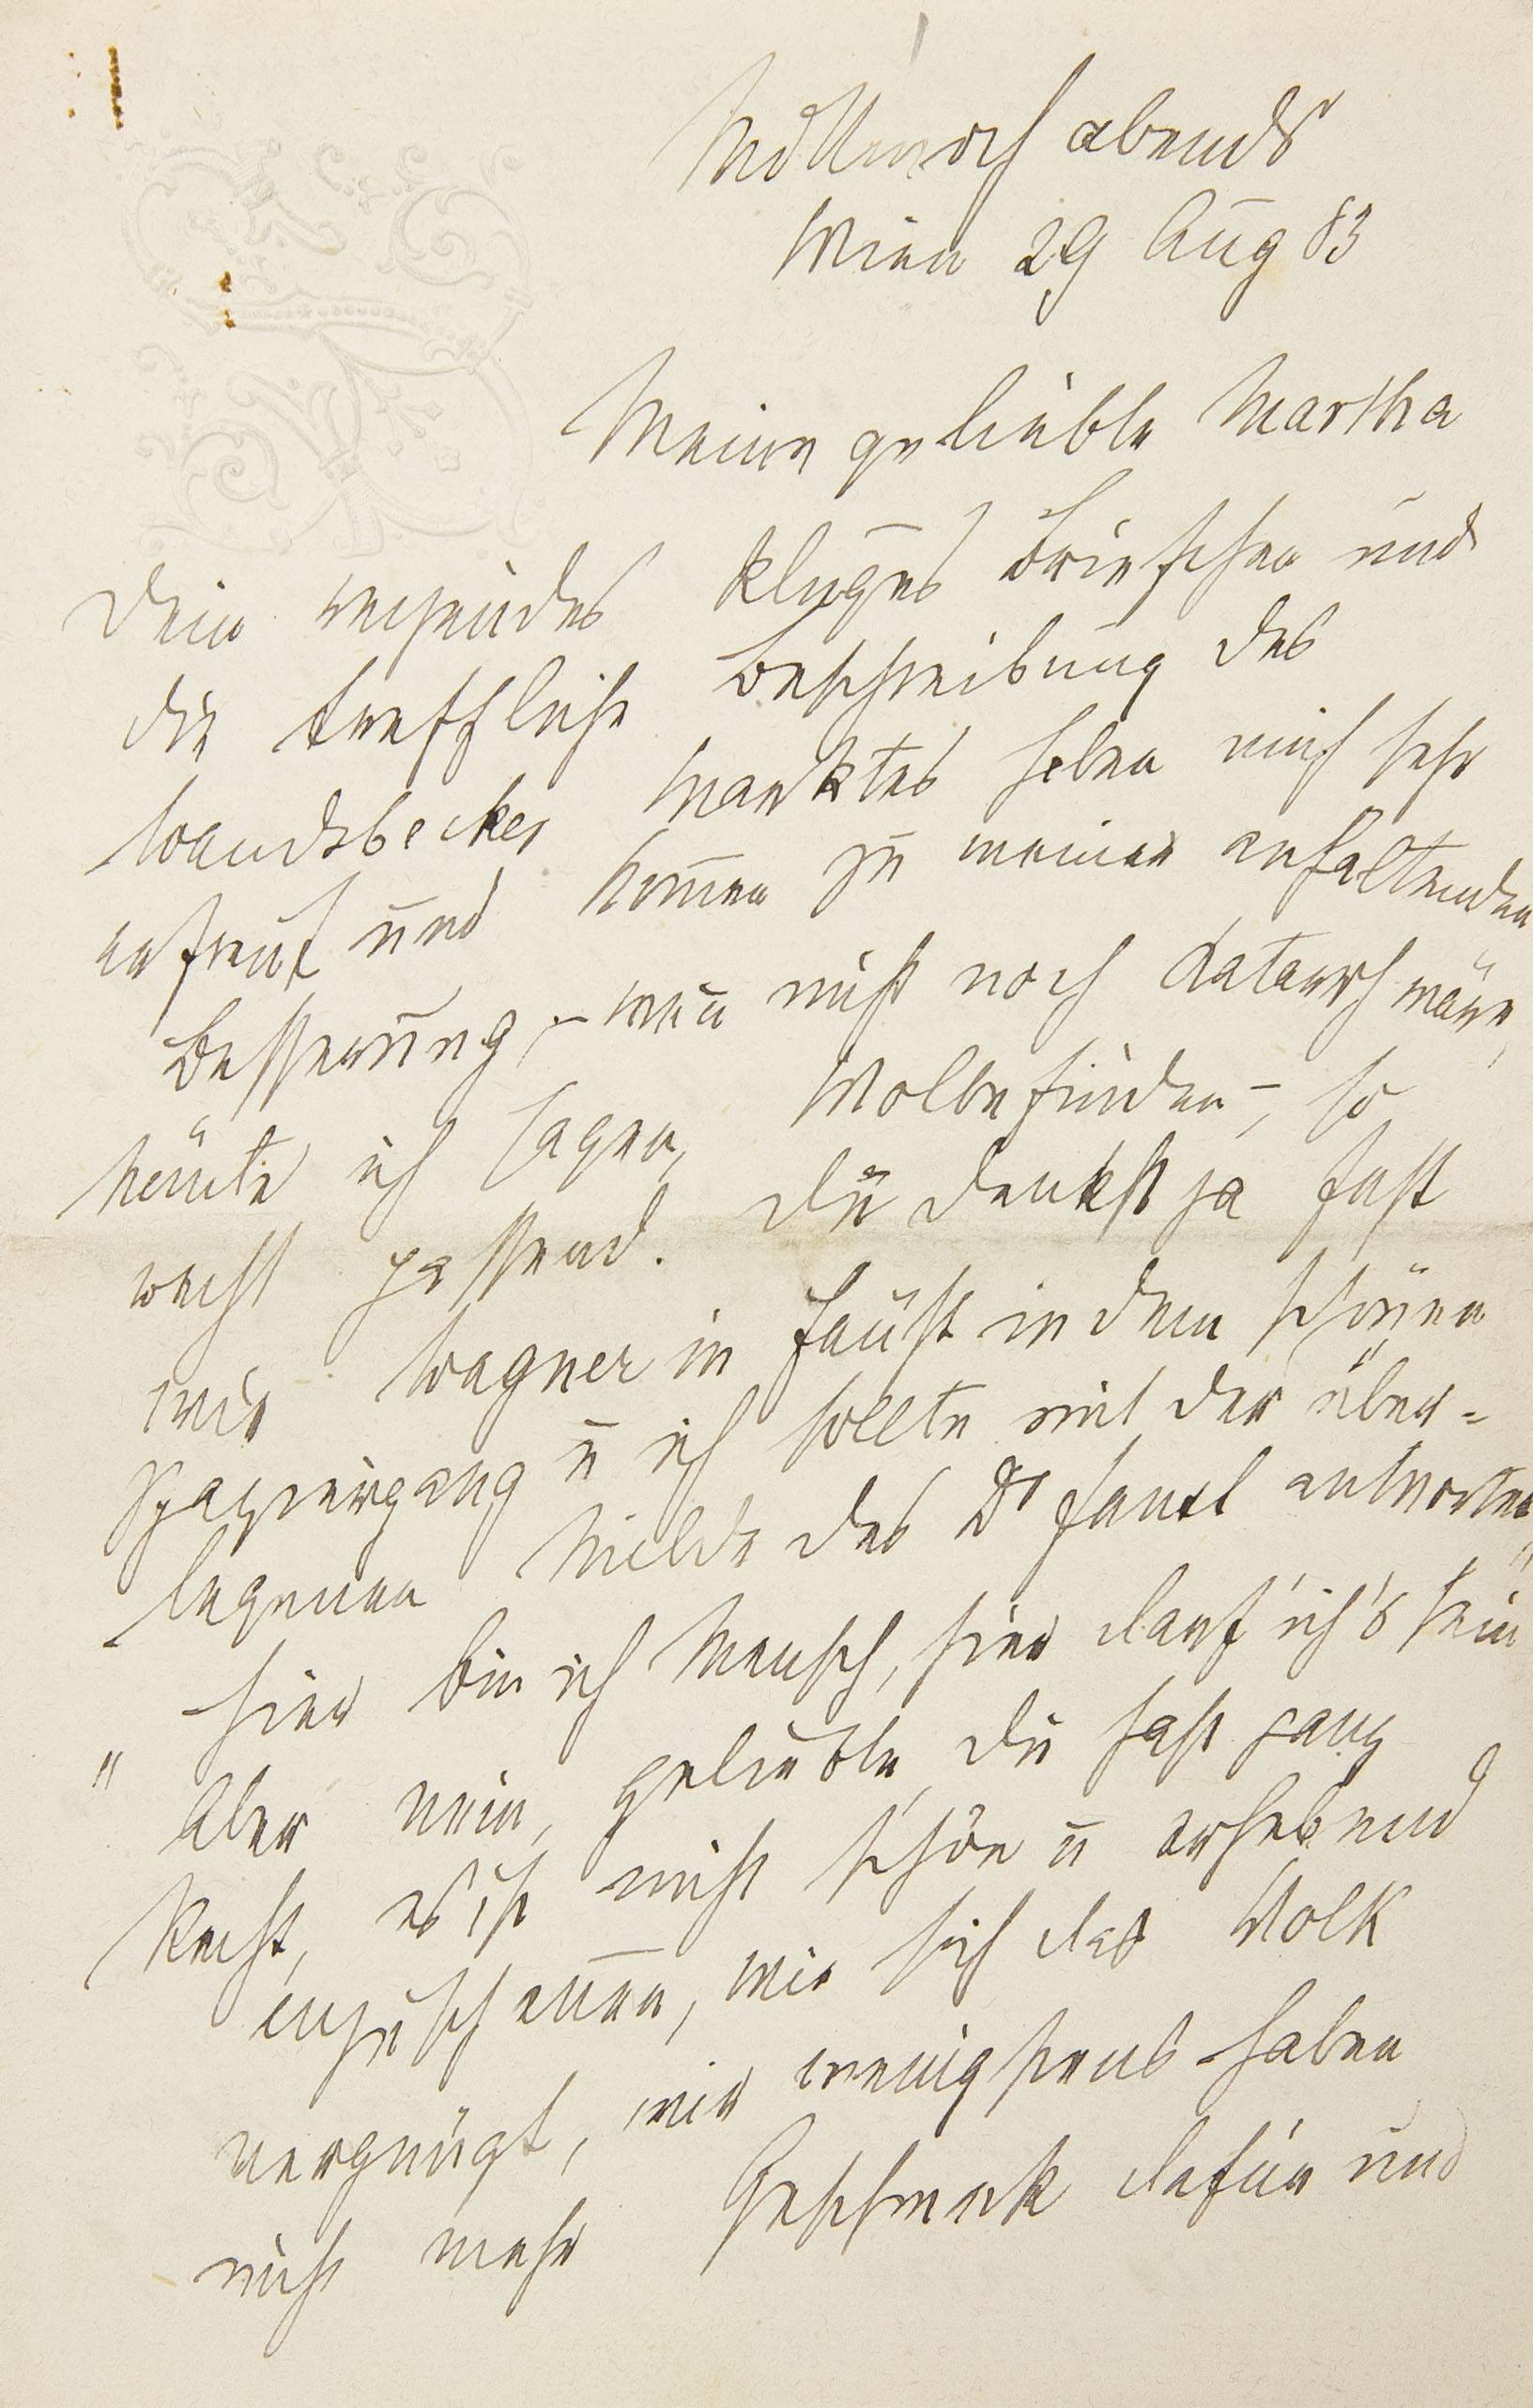 Mittwoch abends
Wien 29 Aug 83
Meine geliebte Martha
Dein reizendes kluges Briefchen und
die treffliche Beschreibung des
Wandsbecker Marktes haben mich sehr
erfreut und kom̅en zu meiner anhaltenden
Besserung, – wen̅ nicht noch Katarrh wäre,
kön̅te ich sagen, Wolbefinden –, so
recht passend. Du denkst ja fast
wie Wagner in Faust in dem schönen
Spaziergang u ich sollte mit der über=
legenen Milde des Dr Faust antworten
„ Hier bin ich Mensch, hier darf ich's sein “
Aber nein, geliebte, du hast ganz
Recht, es ist nicht schön u erhebend
anzuschauen, wie sich das Volk
vergnügt, wir wenigstens haben
nicht mehr Geschmack dafür und